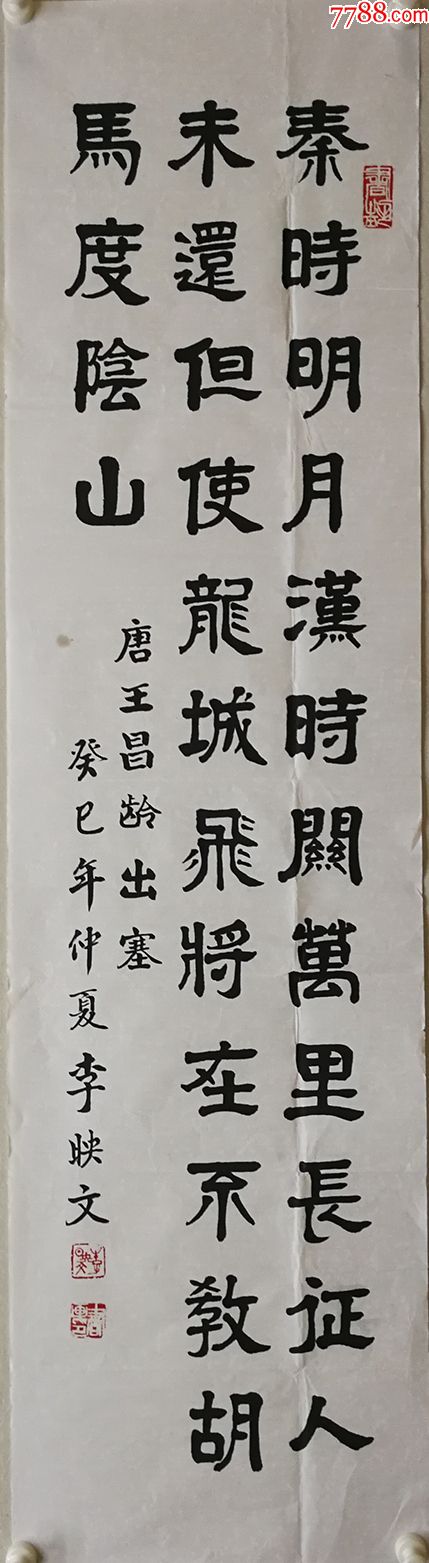 7788.com
秦時明月漢時關萬里長征人
未還但使龍城飛將在不教胡
馬度陰山
唐王昌龄出塞
癸巳年仲夏李映文